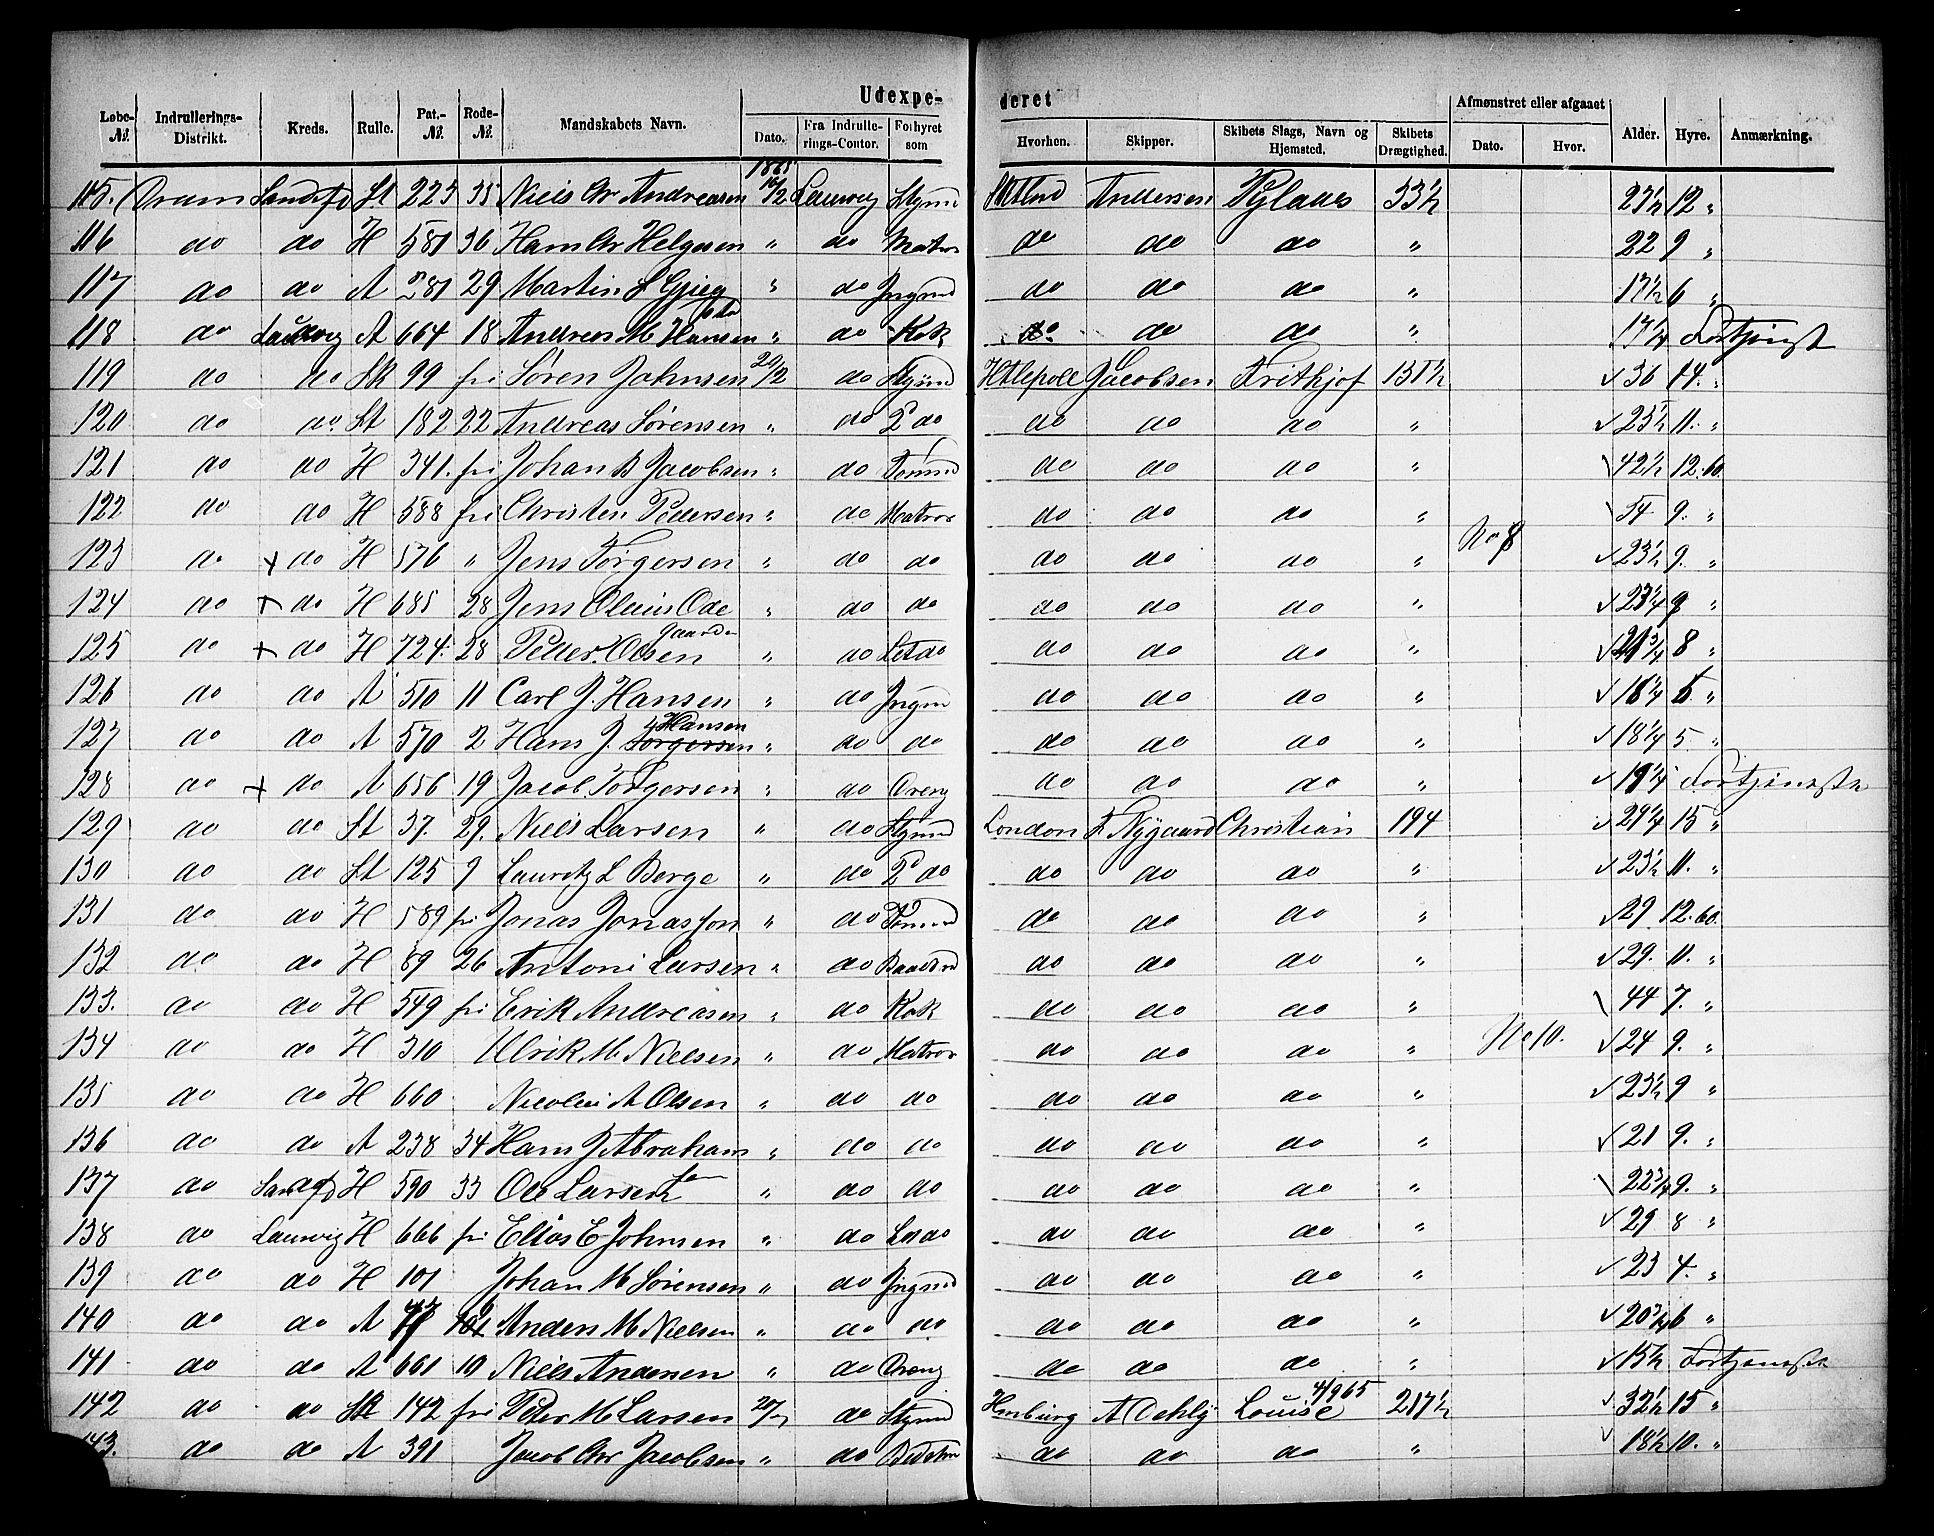 Udexpe- deret
Løbe-№. Indrullerings-Distrikt. Kreds. Rulle. Pat.-№. Rode-№. Mandskabets Navn. Dato. Fra Indrullerings-Contor. Forhyret som Hvorhen. Skipper. Skibets Slags, Navn og Hjemsted. Skibets Drægtighed. Afmønstret eller afgaaet Dato. Hvor. Alder. Hyre. Anmærkning.
1865
115. Dram Sandefd St 223 35 Niels Chr Andreasen 16/2 Laurvig Stymd Andersen Pylades 33½ 27½ 12 "
116 do do H 581 36 Hans Chr Helgesen " do Matros do do do " 22 9 "
117 do do A 281 29 Martin L Gjieg " do Jngmd do do do " 17½ 6 "
118 do Laurvig A 664 18 Andreas M Hansen " do Kok do do do " 17¼ Fortjenst
119 do do Sk 99 fri Søren Johnsen 20/2 do Stymd Htlepoll Jacobsen Frithjof 131½ 36 14. "
120 do do. St 182 22 Andreas Sørensen " do 2 do do do do " 25½ 11. "
121 do do H 341. fri Johan B Jacobsen " do Tømmd do do do " 42½ 12.60.
122 do do H 588 fri Christen Pedersen " do Matros do do do " 54 9. "
123 do + do H 576 " Jens Torgersen " do do do do do " No 8 23½ 9. "
124 do + do H 685 28 Jens Olaus Ode " do do do do do " 23¼ 9 "
125 do + do H 724. 28 Peder Olsen gaarden " do Letdo do do do " 21¾ 8 "
126 do do A 510 11 Carl J. Hansen " do Jngm do do do " 16¼ 5 "
127 do do A 570 2 Hans J. Torgersen Hansen " do do do do do " 18¼ 5 "
128 do + do A 656 19 Jacob Torgersen " do Dreng do do do " 19¼ Fortjeneste
129 do do St 37. 29. Niels Larsen " do Stymd London F Nygaard Christian 194 29¼ 15 "
130 do do St 125 9 Lauritz L Berge " do 2 do do do do " 23½ 11. "
131 do do H 589 fri Jonas Jonassen " do Tømmd do do do " 29 12.60.
132 do do H 89 26 Antoni Larsen " do Baadsmd do do do " 29. 11. "
133. do do H 549 fri Erik Andreasen " do Kok do do do " 44 7. "
134 do do H 310 Ulrik M Nielsen " do Matros do do do " No 10. 24 9. "
135 do do H 660 Nicolai A Olsen " do do do do do " 23½ 9 "
136 do do A 238 34 Hans J Abrahamsen " do do do do do " 21 9. "
137 do Sandefd H 590 33 Ole Larsen " do do do do do " 22¾ 9. "
138 do Laurvig H 666 fri Elias E Johnsen " do Ledo do do do " 29 8 "
139 do do H 101 Johan M Sørensen " do Jngmd do do do " 23 4. "
140 do do A 47 Anders M Nielsen " do do do do do " 20¾ 6 "
141 do do A 661 10 Niels Andersen " do Dreng do do do " 15½ Fortjenste
142 do do Sk 142 fri Peter M Larsen do Stymd Hmburg A Dehly Louise 4/9 65 217½ 32½ 15 "
143. do do A 391 Jacob Chr Jacobsen " do do do do " 18½ 10. "